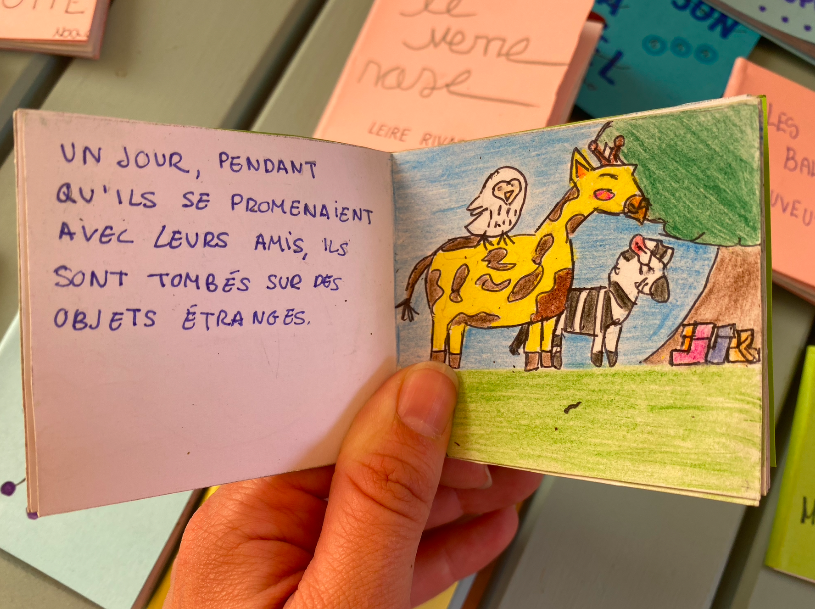 UN JOUR, PENDANT
QU'ILS SE PROMENAIENT
AVEC LEURS AMIS, ILS
SONT TOMBÉS SUR DES
OBJETS ÉTRANGES.
verre
rose
LEIRE
SON
LES